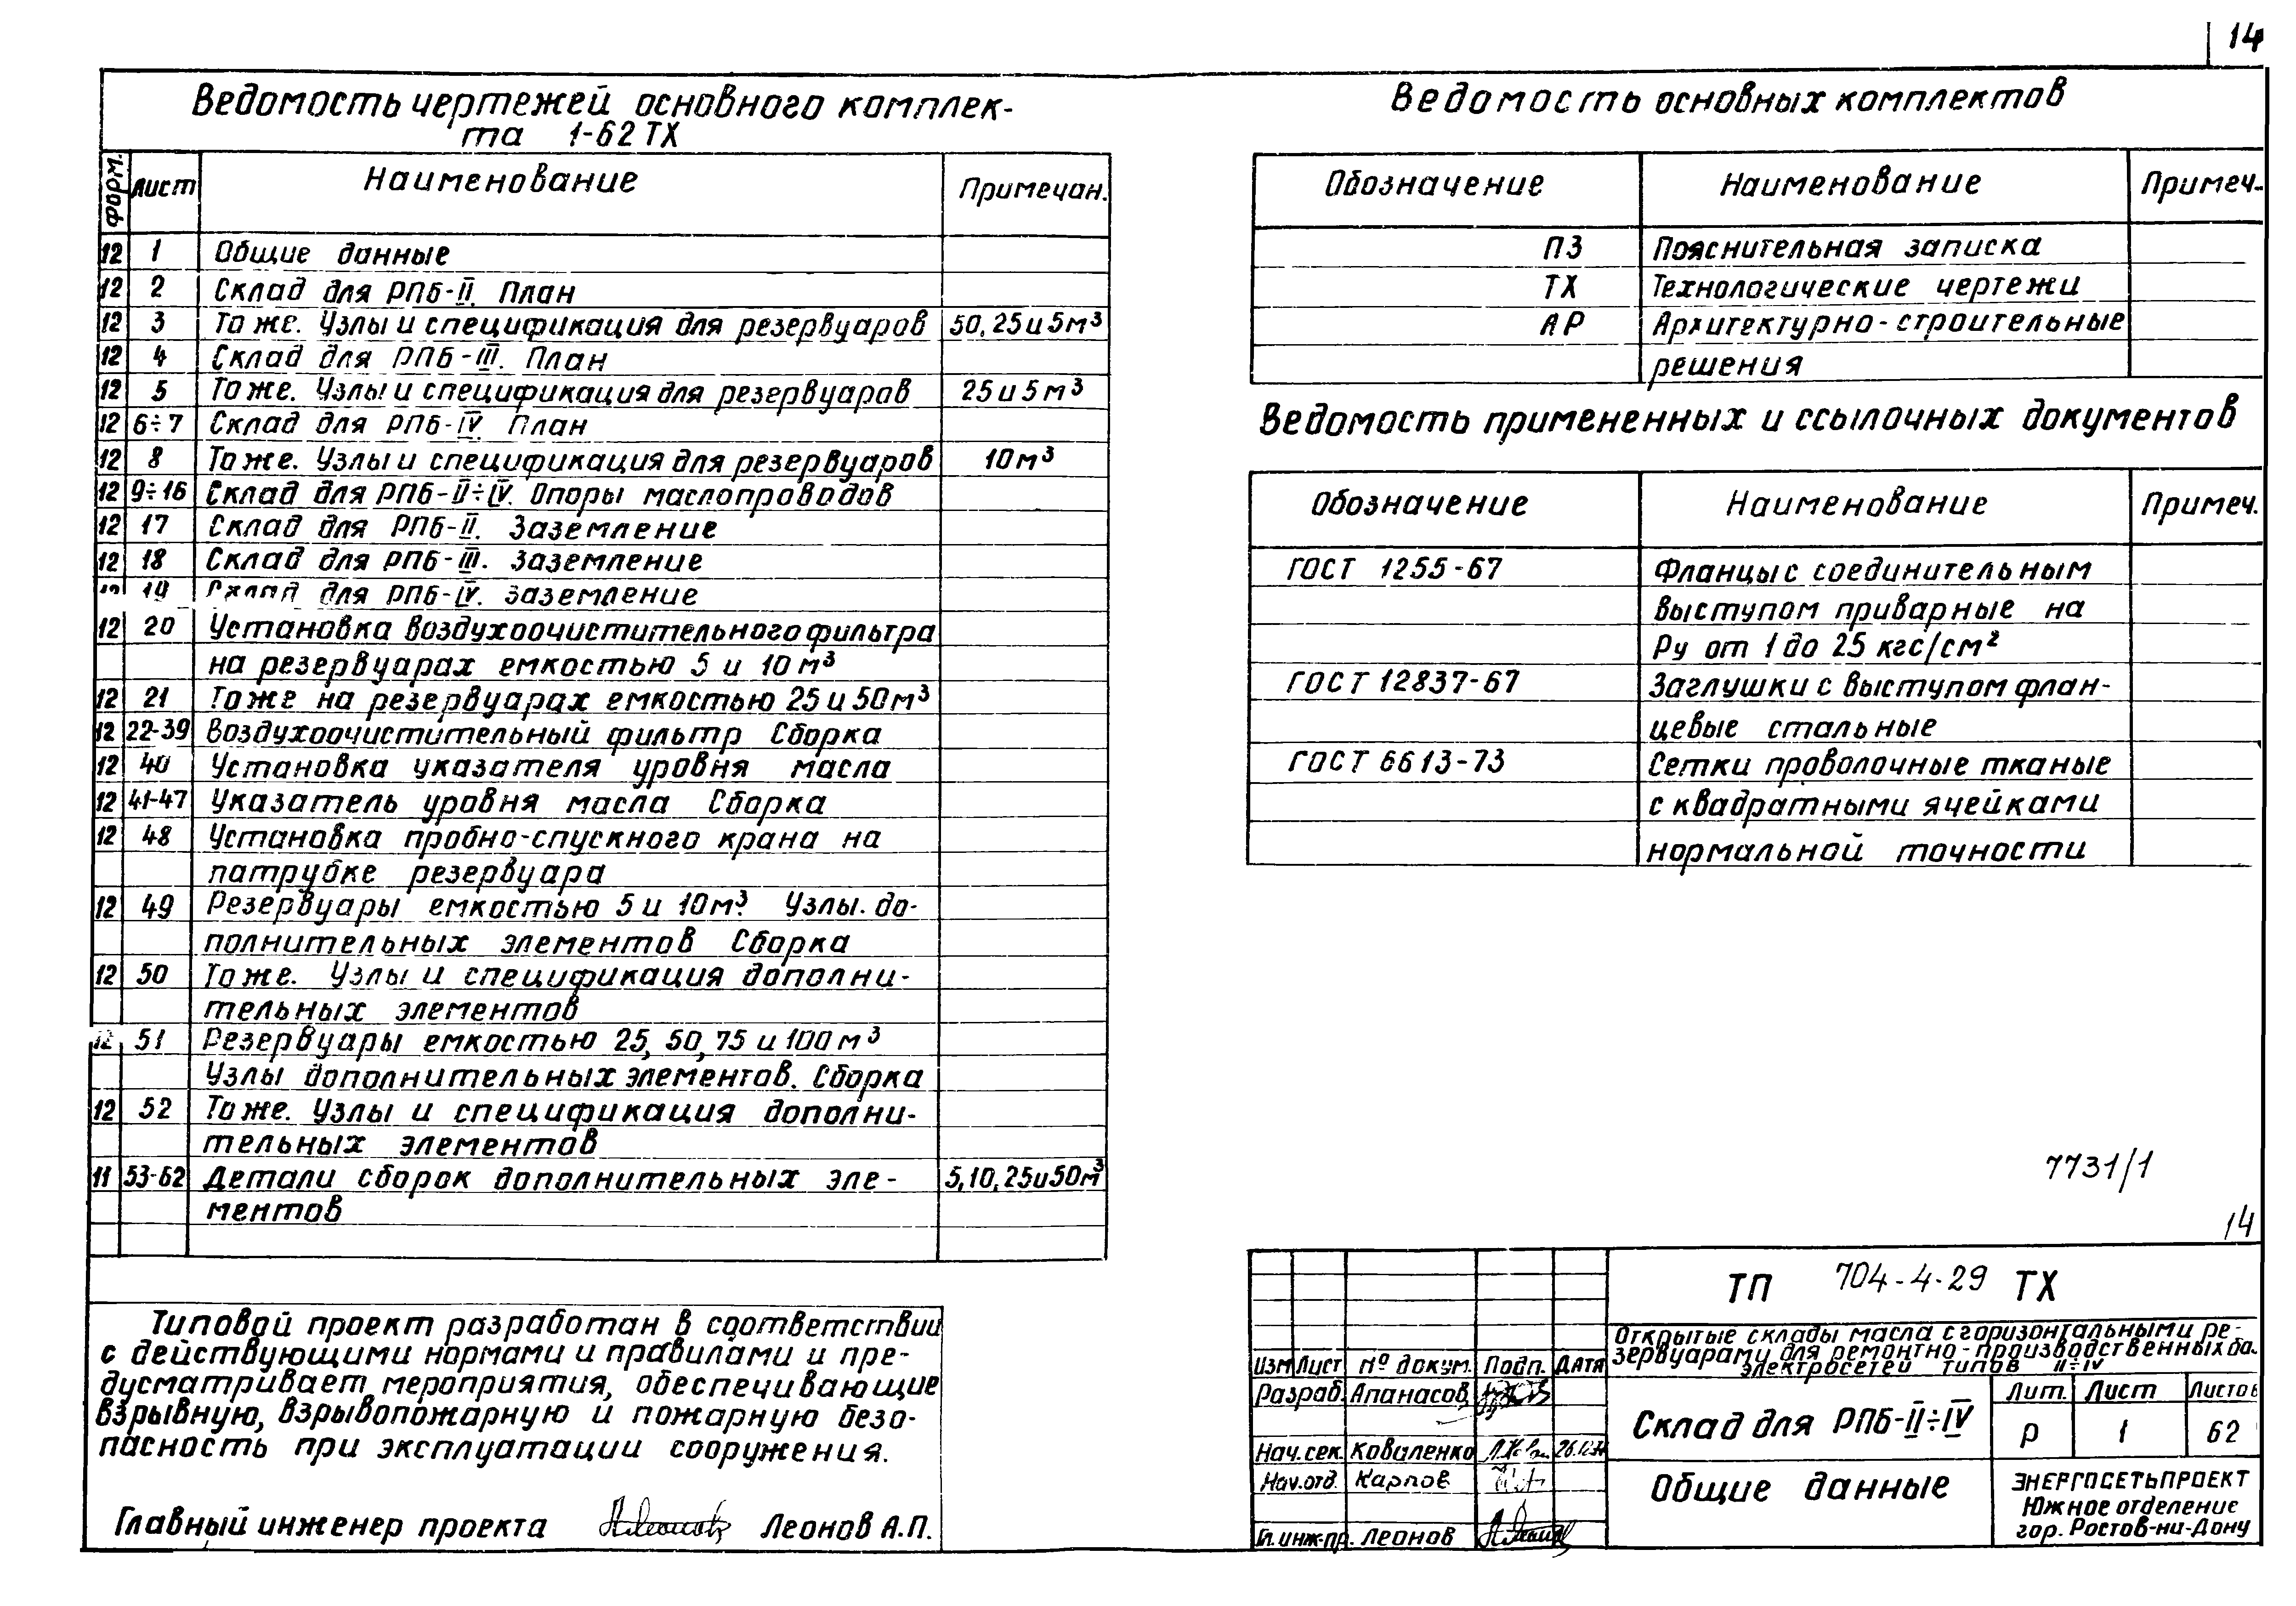 14
Ведомость чертежей основного комплек-
та 1-62 ТХ
Форм. Лист Наименование Примечан.
12 1 Общие данные
12 2 Склад для РПБ-II. План
12 3 То же. Узлы и спецификация для резервуаров 50, 25 и 5 м³
12 4 Склад для РПБ-III. План
12 5 То же. Узлы и спецификация для резервуаров 25 и 5 м³
12 6÷7 Склад для РПБ-IV. План
12 8 То же. Узлы и спецификация для резервуаров 10 м³
12 9÷16 Склад для РПБ-II÷IV. Опоры маслопроводов
12 17 Склад для РПБ-II. Заземление
12 18 Склад для РПБ-III. Заземление
19 Склад для РПБ-IV. Заземление
12 20 Установка воздухоочистительного фильтра
на резервуарах емкостью 5 и 10 м³
12 21 То же на резервуарах емкостью 25 и 50 м³
12 22-39 Воздухоочистительный фильтр Сборка
12 40 Установка указателя уровня масла
12 41-47 Указатель уровня масла Сборка
12 48 Установка пробно-спускного крана на
патрубке резервуара
12 49 Резервуары емкостью 5 и 10 м³. Узлы до-
полнительных элементов Сборка
12 50 То же. Узлы и спецификация дополни-
тельных элементов
12 51 Резервуары емкостью 25, 50, 75 и 100 м³
Узлы дополнительных элементов. Сборка
12 52 То же. Узлы и спецификация дополни-
тельных элементов
11 53-62 Детали сборок дополнительных эле- 5, 10, 25 и 50 м³
ментов
Типовой проект разработан в соответствии
с действующими нормами и правилами и пре-
дусматривает мероприятия, обеспечивающие
взрывную, взрывопожарную и пожарную безо-
пасность при эксплуатации сооружения.
Главный инженер проекта Леонов А.П.
Ведомость основных комплектов
Обозначение Наименование Примеч.
ПЗ Пояснительная записка
ТХ Технологические чертежи
АР Архитектурно-строительные
решения
Ведомость примененных и ссылочных документов
Обозначение Наименование Примеч.
ГОСТ 1255-67 Фланцы с соединительным
выступом приварные на
Ру от 1 до 25 кгс/см²
ГОСТ 12837-67 Заглушки с выступом флан-
цевые стальные
ГОСТ 6613-73 Сетки проволочные тканые
с квадратными ячейками
нормальной точности
7731/1
14
ТП 704-4-29 ТХ
Открытые склады масла с горизонтальными ре-
зервуарами для ремонтно-производственных ба.
электросетей типов II÷IV
Изм Лист № докум. Подп. Дата
Разраб. Апанасов
Нач.сек. Коваленко
Нач.отд. Карпов
Гл.инж.пр. Леонов
Склад для РПБ-II÷IV
Лит. Лист Листов
Р 1 62
Общие данные
ЭНЕРГОСЕТЬПРОЕКТ
Южное отделение
гор. Ростов-на-Дону